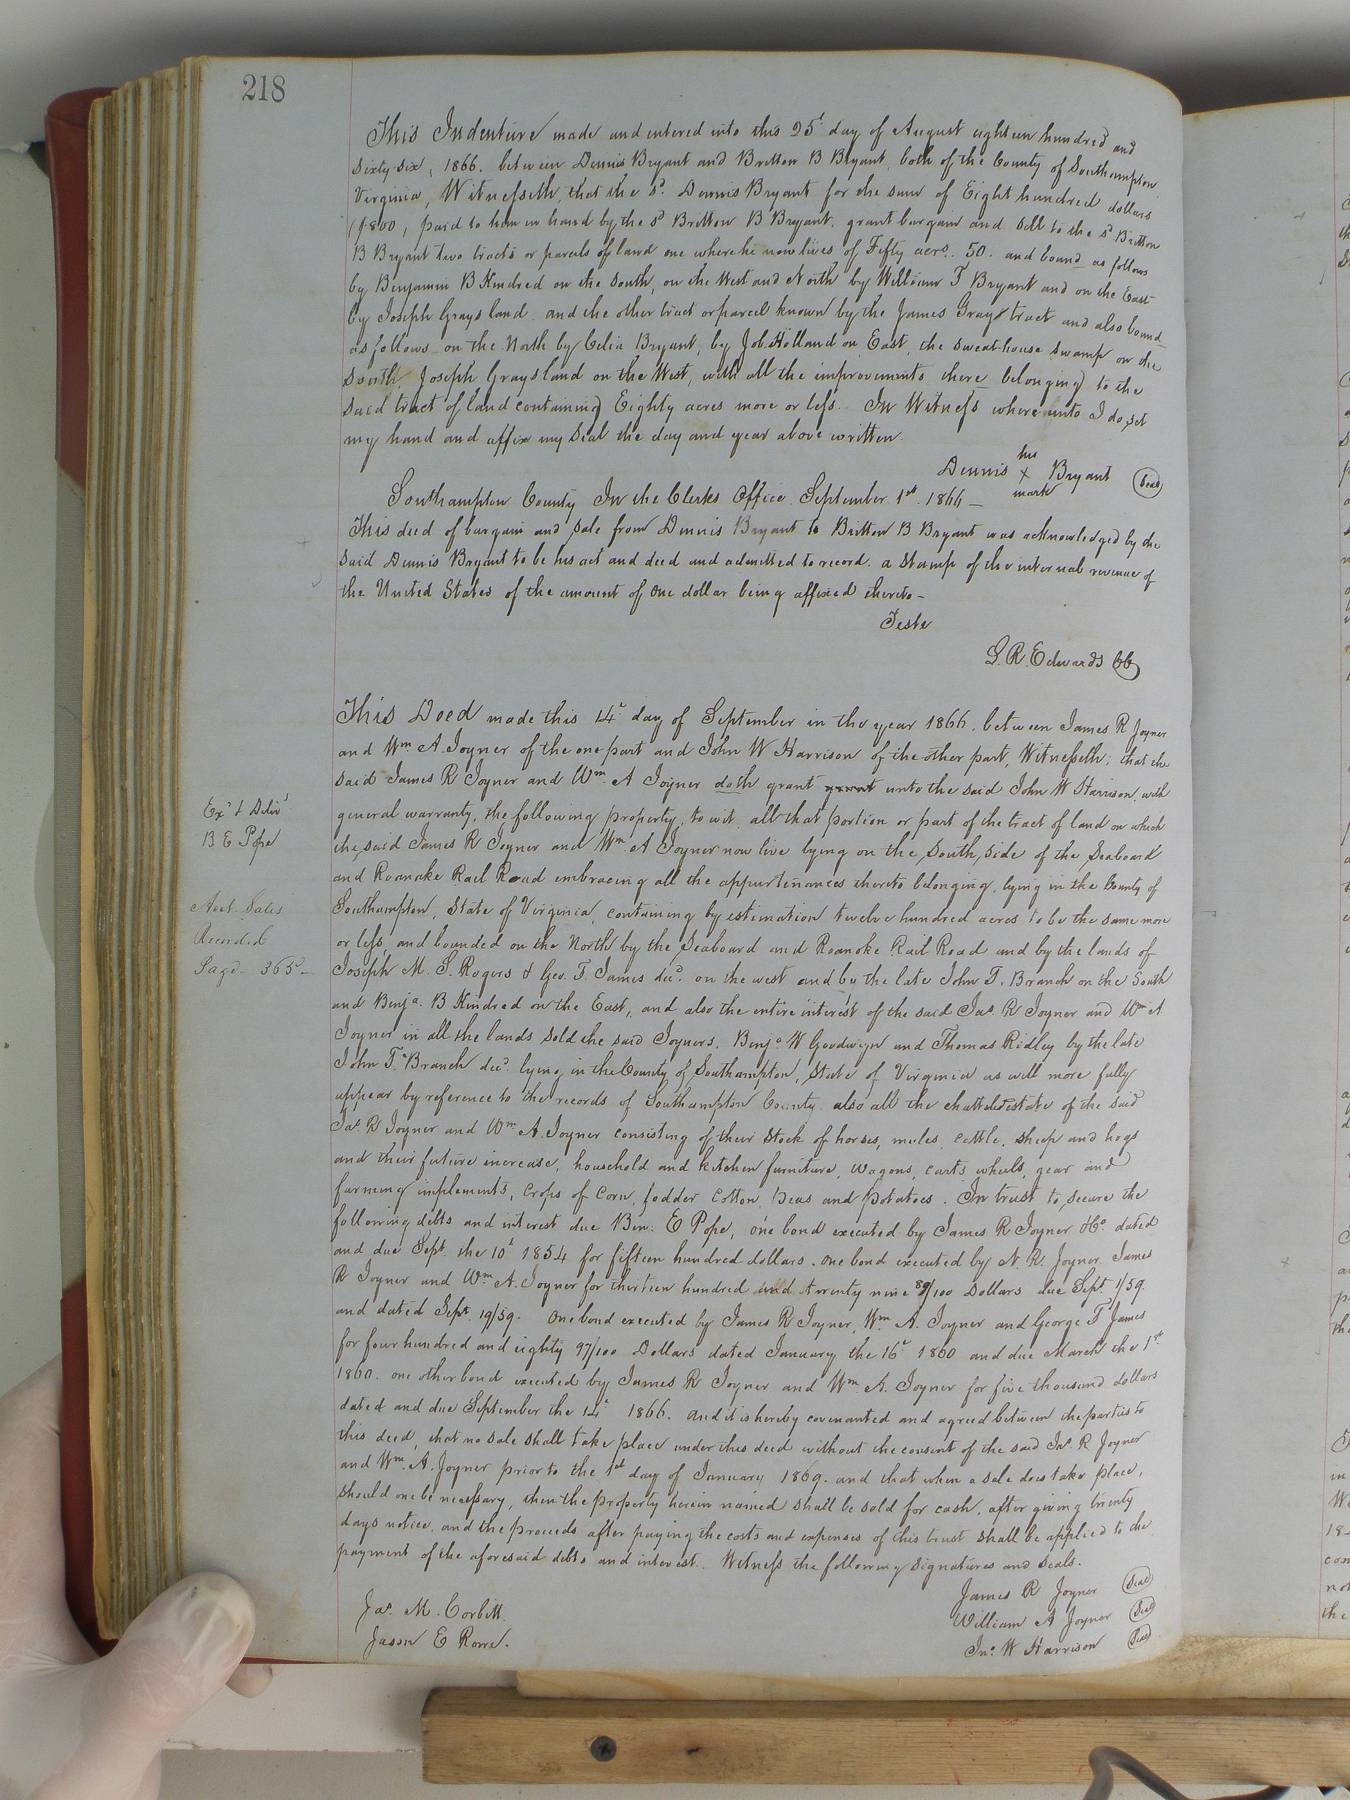 218
This Indenture made and entered into this 25t day of August eighteen hundred and
sixty-six, 1866. between Dennis Bryant and Britton B Bryant, both of the County of Southampton
Virginia, Witnesseth, that the sd. Dennis Bryant for the sum of Eight hundred dollars
($800, paid to him in hand by the sd Britton B Bryant. grant bargain and sell to the sd Britton
B Bryant two tracts or parcels of land one where he now lives of Fifty acrs. 50. and bound as follows
by Benjamin B Kindred on the South, on the West and North by William T Bryant and on the East
by Joseph Grays land and the other tract or parcel known by the James Gray tract and also bound
as follows on the North by Celia Bryant, by Job. Holland on East, the sweat-house swamp on the
South, Joseph Graysland on the West, with all the improvements there belonging to the
said tract of land containing Eighty acres more or less. In Witness where unto I do, set
my hand and affix my Seal the day and year above written.
his
Dennis X Bryant Seal
mark
Southampton County In the Clerks Office September 1st. 1866 —
This deed of bargain and sale from Dennis Bryant to Britton B Bryant was acknowledged by the
said Dennis Bryant to be his act and deed and admitted to record. a stamp of the internal revenue of
the United States of the amount of one dollar being affixed thereto —
Teste
L. R. Edwards CC
This Deed made this 14t day of September in the year 1866. between James R Joyner
and Wm A. Joyner of the one part and John W Harrison of the other part, Witnesseth; that the
said James R Joyner and Wm A Joyner doth grant grant unto the said John W Harrison, with
general warranty, the following property, to wit. all that portion or part of the tract of land on which
the said James R Joyner and Wm. A Joyner now live lying on the South side of the Seaboard
and Roanoke Rail Road embracing all the appurtenances thereto belonging, lying in the County of
Southampton, State of Virginia, containing by estimation twelve hundred acres to be the same more
or less and bounded on the North by the Seaboard and Roanoke Rail Road and by the lands of
Joseph M. S. Rogers & Geo. T. James decd. on the west and by the late John T. Branch on the South
and Benja. B Kindred on the East, and also the entire interest of the said Jas. R Joyner and Wm A
Joyner in all the lands sold the said Joyners, Benja W Goodwyn and Thomas Ridley by the late
John T. Branch decd. lying in the County of Southampton, State of Virginia as will more fully
appear by reference to the records of Southampton County also all the chattel estate of the said
Jas. R Joyner and Wm. A. Joyner consisting of their stock of horses, mules, cattle, sheep and hogs
and their future increase, household and kitchen furniture, wagons, carts wheels, gear and
farming implements, crops of corn, fodder cotton, peas and potatoes. In trust to, secure the
following debts and interest due Ben: E Pope, one bond executed by James R Joyner &Co dated
and due Sept. the 10t 1854 for fifteen hundred dollars. one bond executed by N. R. Joyner James
R Joyner and Wm. A. Joyner for thirteen hundred and twenty nine 89/100 Dollars due Sept. 1/59.
and dated Sept. 19/59. One bond executed by James R Joyner, Wm A. Joyner and George T James
for four hundred and eighty 97/100 Dollars dated January the 16t 1860 and due March the 1st
1860. one other bond executed by James R Joyner and Wm. A. Joyner for five thousand dollars
dated and due September the 14t 1866. and it is hereby covenanted and agreed between the parties to
this deed, that no sale shall take place under this deed without the consent of the said Jas. R Joyner
and Wm. A. Joyner prior to the 1st day of January 1869. and that when a sale does take place,
should one be necessary, then the property herein named shall be sold for cash, after giving twenty
days notice, and the proceeds after paying the costs and expenses of this trust shall be applied to the
payment of the aforesaid debts and interest. Witness the following signatures and seals.
Jas. M. Corbitt
Jason E Rowe.
James R Joyner Seal
William A Joyner Seal
Jno. W Harrison Seal
Exd & Delivd
B E Pope
Acct. Sales
Recorded
Page 365 —